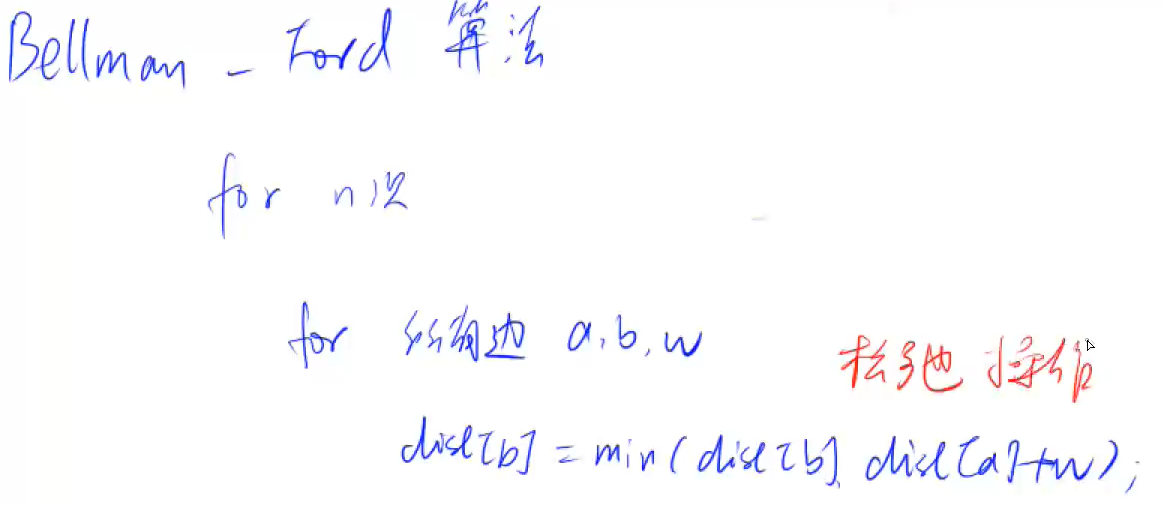 Bellman - Ford 算法
for n次
for 所有边 a,b,w
松弛操作
dist[b] = min(dist[b], dist[a]+w);